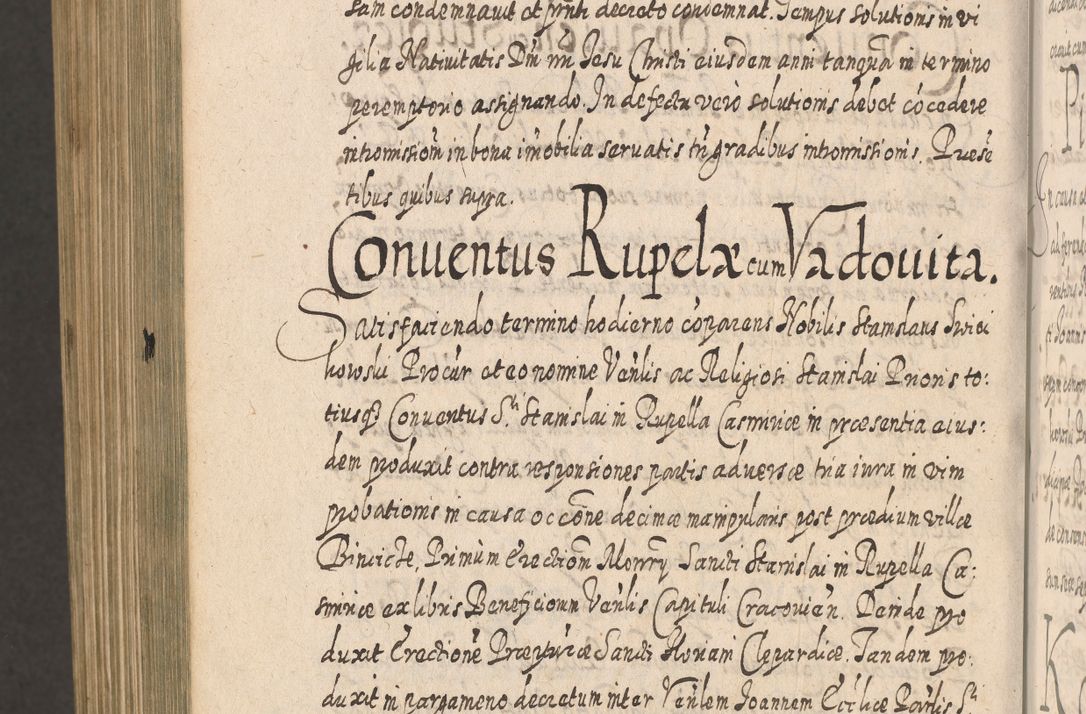 sam condemnauit et pñti decreto condemnat. Tempus solutionis in vi
gilia Natiuitatis Dni nri Jesu Christi eiusdem anni tanquã in termino
peremptorio assignando. In defectu vero solutionis debet cõcedere
intromissiom in bona imõbilia seruatis tñ gradibus intromissionis. Præsẽ
tibus quibus supra.
Conuentus Rupelæ cum Vadouita.
Satisfaciendo termino hodierno cõparens Nobilis Stanislaus Swieci
howski Procũr et eo nomine Venlis ac Religiosi Stanislai Prioris to:
tiusq3 Conuentus Sti Stanislai in Rupella Casimiriæ in præsentia eius:
dem produxit contra responsiones partis aduersæ tria iura in vim
probationis in causa occõne decimæ manipularis post prædium villæ
Primum Erectiom Monrÿ Sancti Stanislai in Rupella Ca:
simiriæ ex libris Beneficiorum Venlis Capituli Cracouien. Deinde pro
duxit Erectionẽ Præpturæ Sancti Clepardiæ. Tandem pro:
duxit in pargameno decretum inter Venlem Joannem Ecclæ Parlis Sti